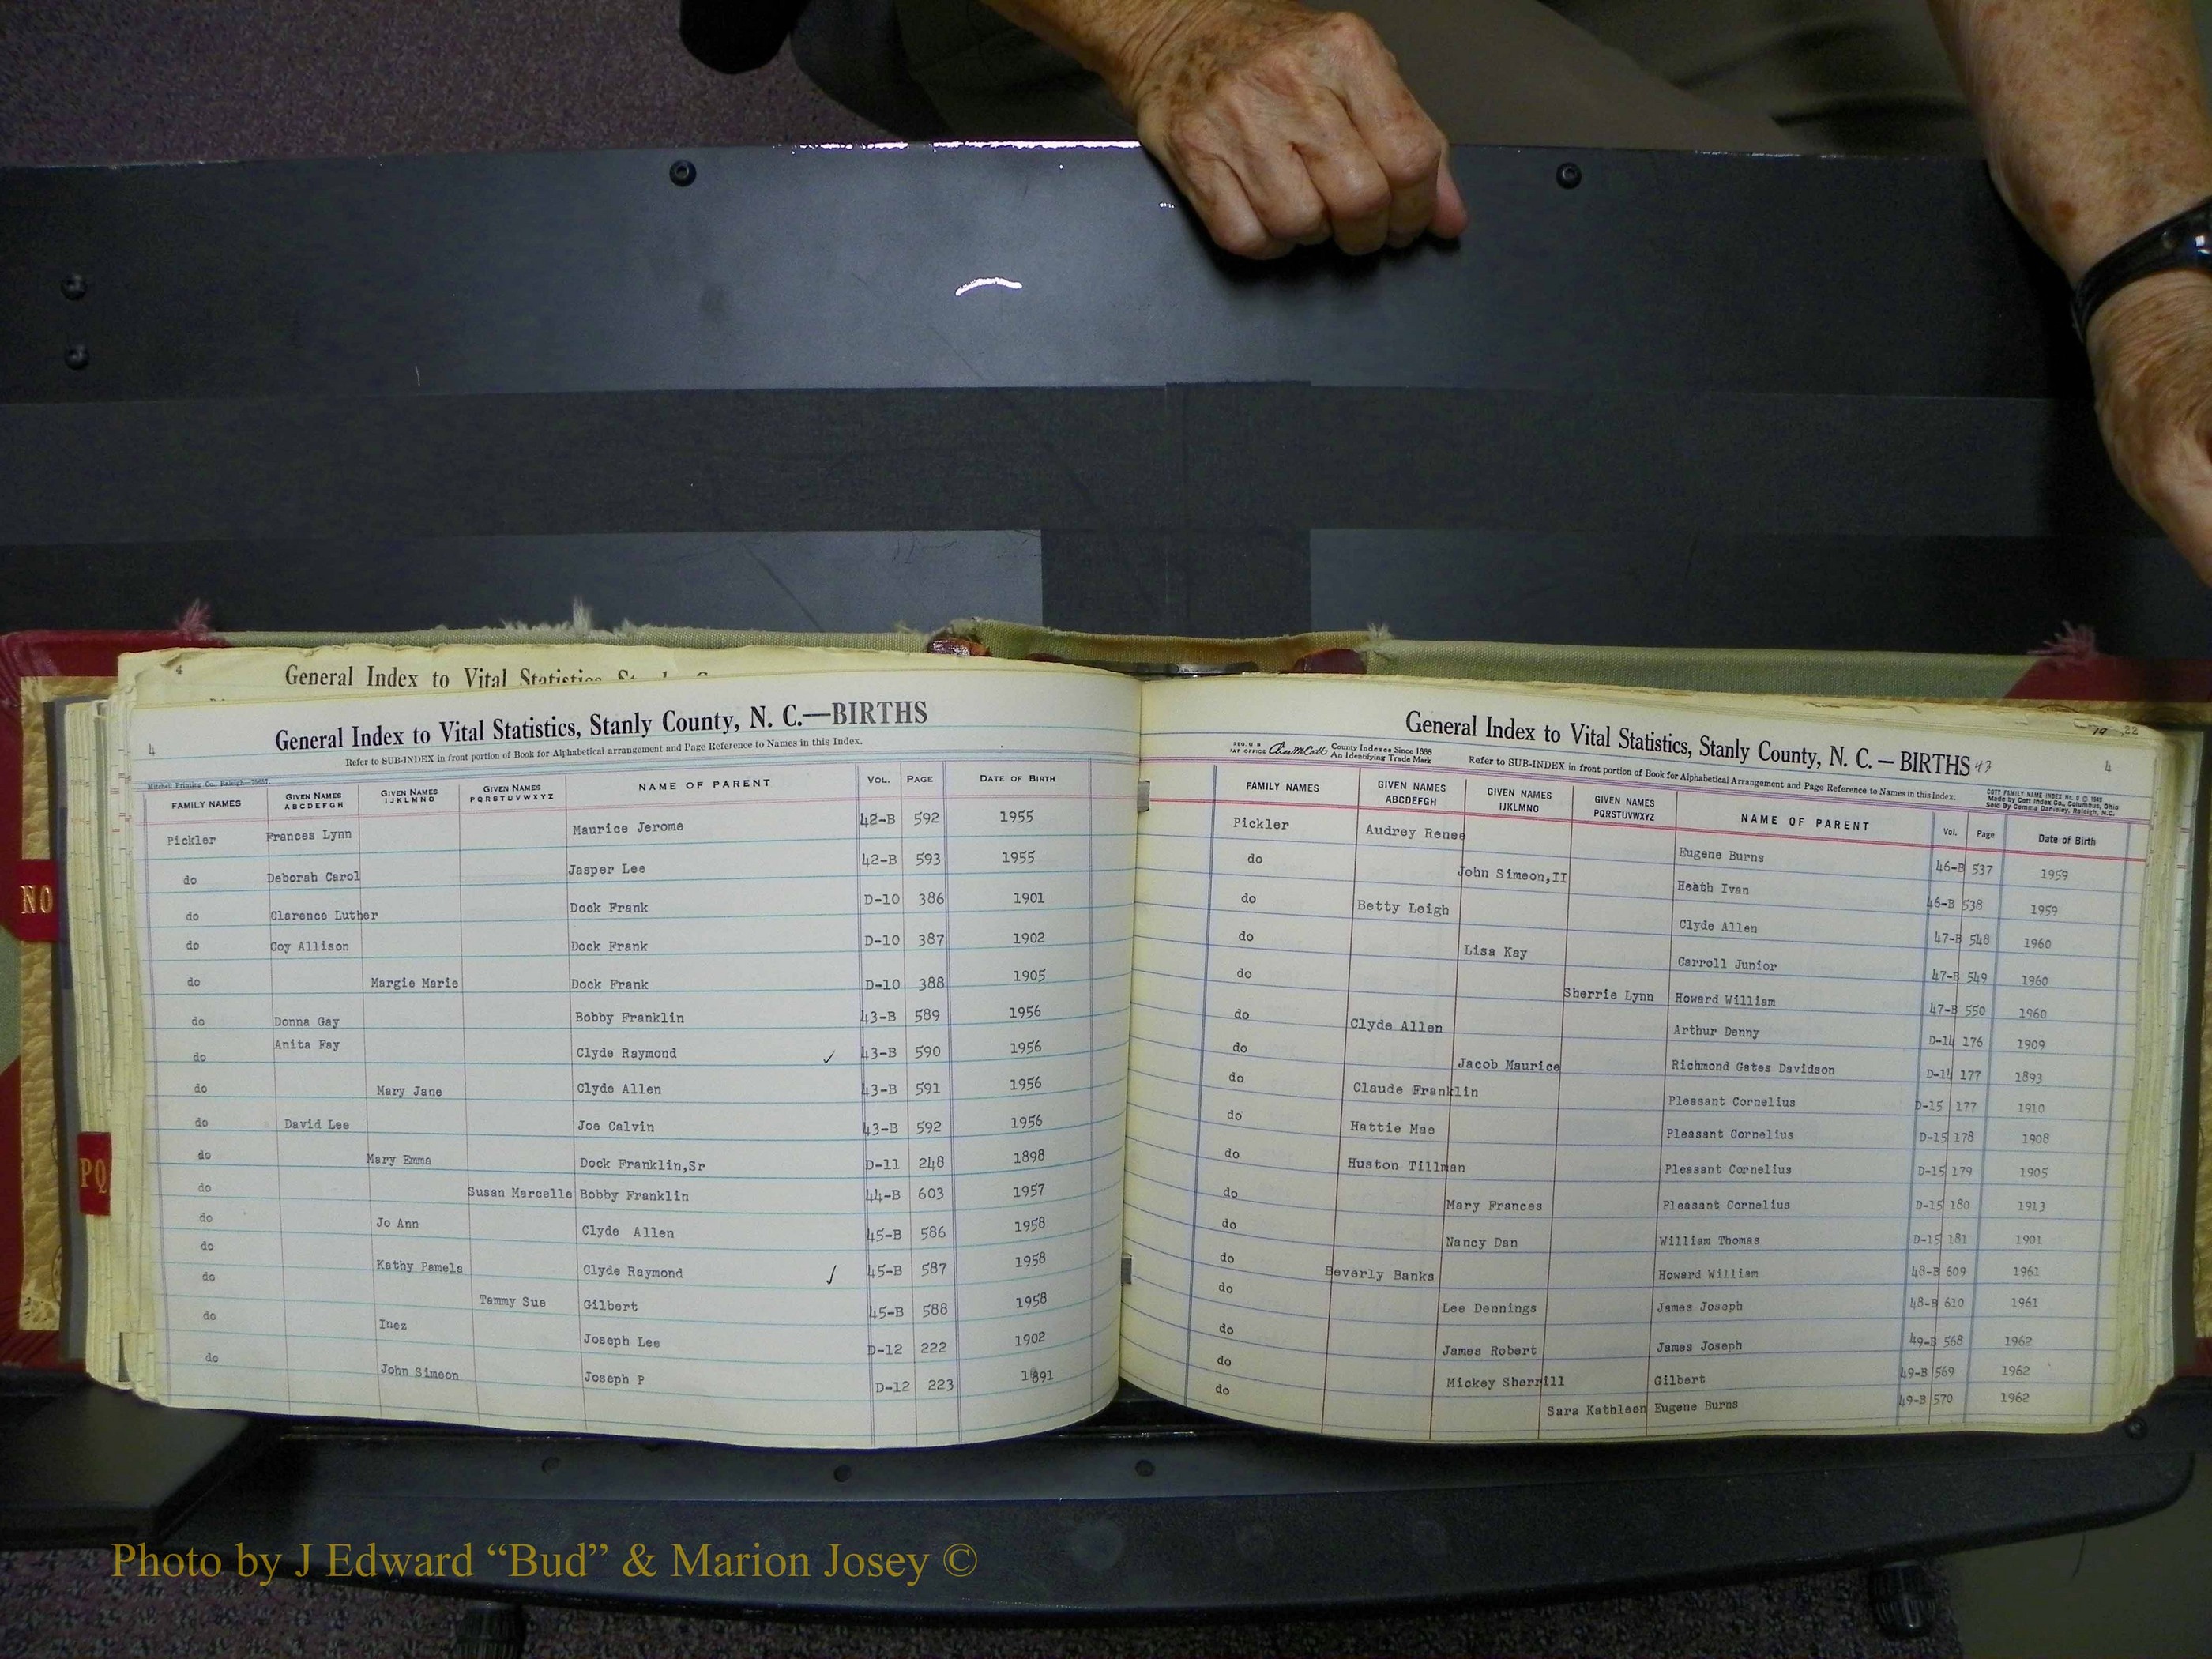 4
General Index to Vital Statistics, St
General Index to Vital Statistics, Stanly County, N. C.—BIRTHS
4
Refer to SUB-INDEX in front portion of Book for Alphabetical arrangement and Page Reference to Names in this Index.
Mitchell Printing Co., Raleigh
FAMILY NAMES GIVEN NAMES ABCDEFGH GIVEN NAMES IJKLMNO GIVEN NAMES PQRSTUVWXYZ NAME OF PARENT VOL. PAGE DATE OF BIRTH
Pickler Frances Lynn Maurice Jerome 42-B 592 1955
do Deborah Carol Jasper Lee 42-B 593 1955
do Clarence Luther Dock Frank D-10 386 1901
do Coy Allison Dock Frank D-10 387 1902
do Margie Marie Dock Frank D-10 388 1905
do Donna Gay Bobby Franklin 43-B 589 1956
do Anita Fay Clyde Raymond ✓ 43-B 590 1956
do Mary Jane Clyde Allen 43-B 591 1956
do David Lee Joe Calvin 43-B 592 1956
do Mary Emma Dock Franklin,Sr D-11 248 1898
do Susan Marcelle Bobby Franklin 44-B 603 1957
do Jo Ann Clyde Allen 45-B 586 1958
do Kathy Pamela Clyde Raymond ✓ 45-B 587 1958
do Tammy Sue Gilbert 45-B 588 1958
do Inez Joseph Lee D-12 222 1902
do John Simeon Joseph P D-12 223 1891
General Index to Vital Statistics, Stanly County, N. C. — BIRTHS 47
19 22
4
REG. U. S. PAT OFFICE County Indexes Since 1888 An Identifying Trade Mark
Refer to SUB-INDEX in front portion of Book for Alphabetical Arrangement and Page Reference to Names in this Index.
COTT FAMILY NAME INDEX
Made by Cott Index Co., Columbus, Ohio
FAMILY NAMES GIVEN NAMES ABCDEFGH GIVEN NAMES IJKLMNO GIVEN NAMES PQRSTUVWXYZ NAME OF PARENT Vol. Page Date of Birth
Pickler Audrey Renee Eugene Burns 46-B 537 1959
do John Simeon,II Heath Ivan 46-B 538 1959
do Betty Leigh Clyde Allen 47-B 548 1960
do Lisa Kay Carroll Junior 47-B 549 1960
do Sherrie Lynn Howard William 47-B 550 1960
do Clyde Allen Arthur Denny D-14 176 1909
do Jacob Maurice Richmond Gates Davidson D-14 177 1893
do Claude Franklin Pleasant Cornelius D-15 177 1910
do Hattie Mae Pleasant Cornelius D-15 178 1908
do Huston Tillman Pleasant Cornelius D-15 179 1905
do Mary Frances Pleasant Cornelius D-15 180 1913
do Nancy Dan William Thomas D-15 181 1901
do Beverly Banks Howard William 48-B 609 1961
do Lee Dennings James Joseph 48-B 610 1961
do James Robert James Joseph 49-B 568 1962
do Mickey Sherrill Gilbert 49-B 569 1962
do Sara Kathleen Eugene Burns 49-B 570 1962
NO
PQ
Photo by J Edward “Bud” & Marion Josey ©